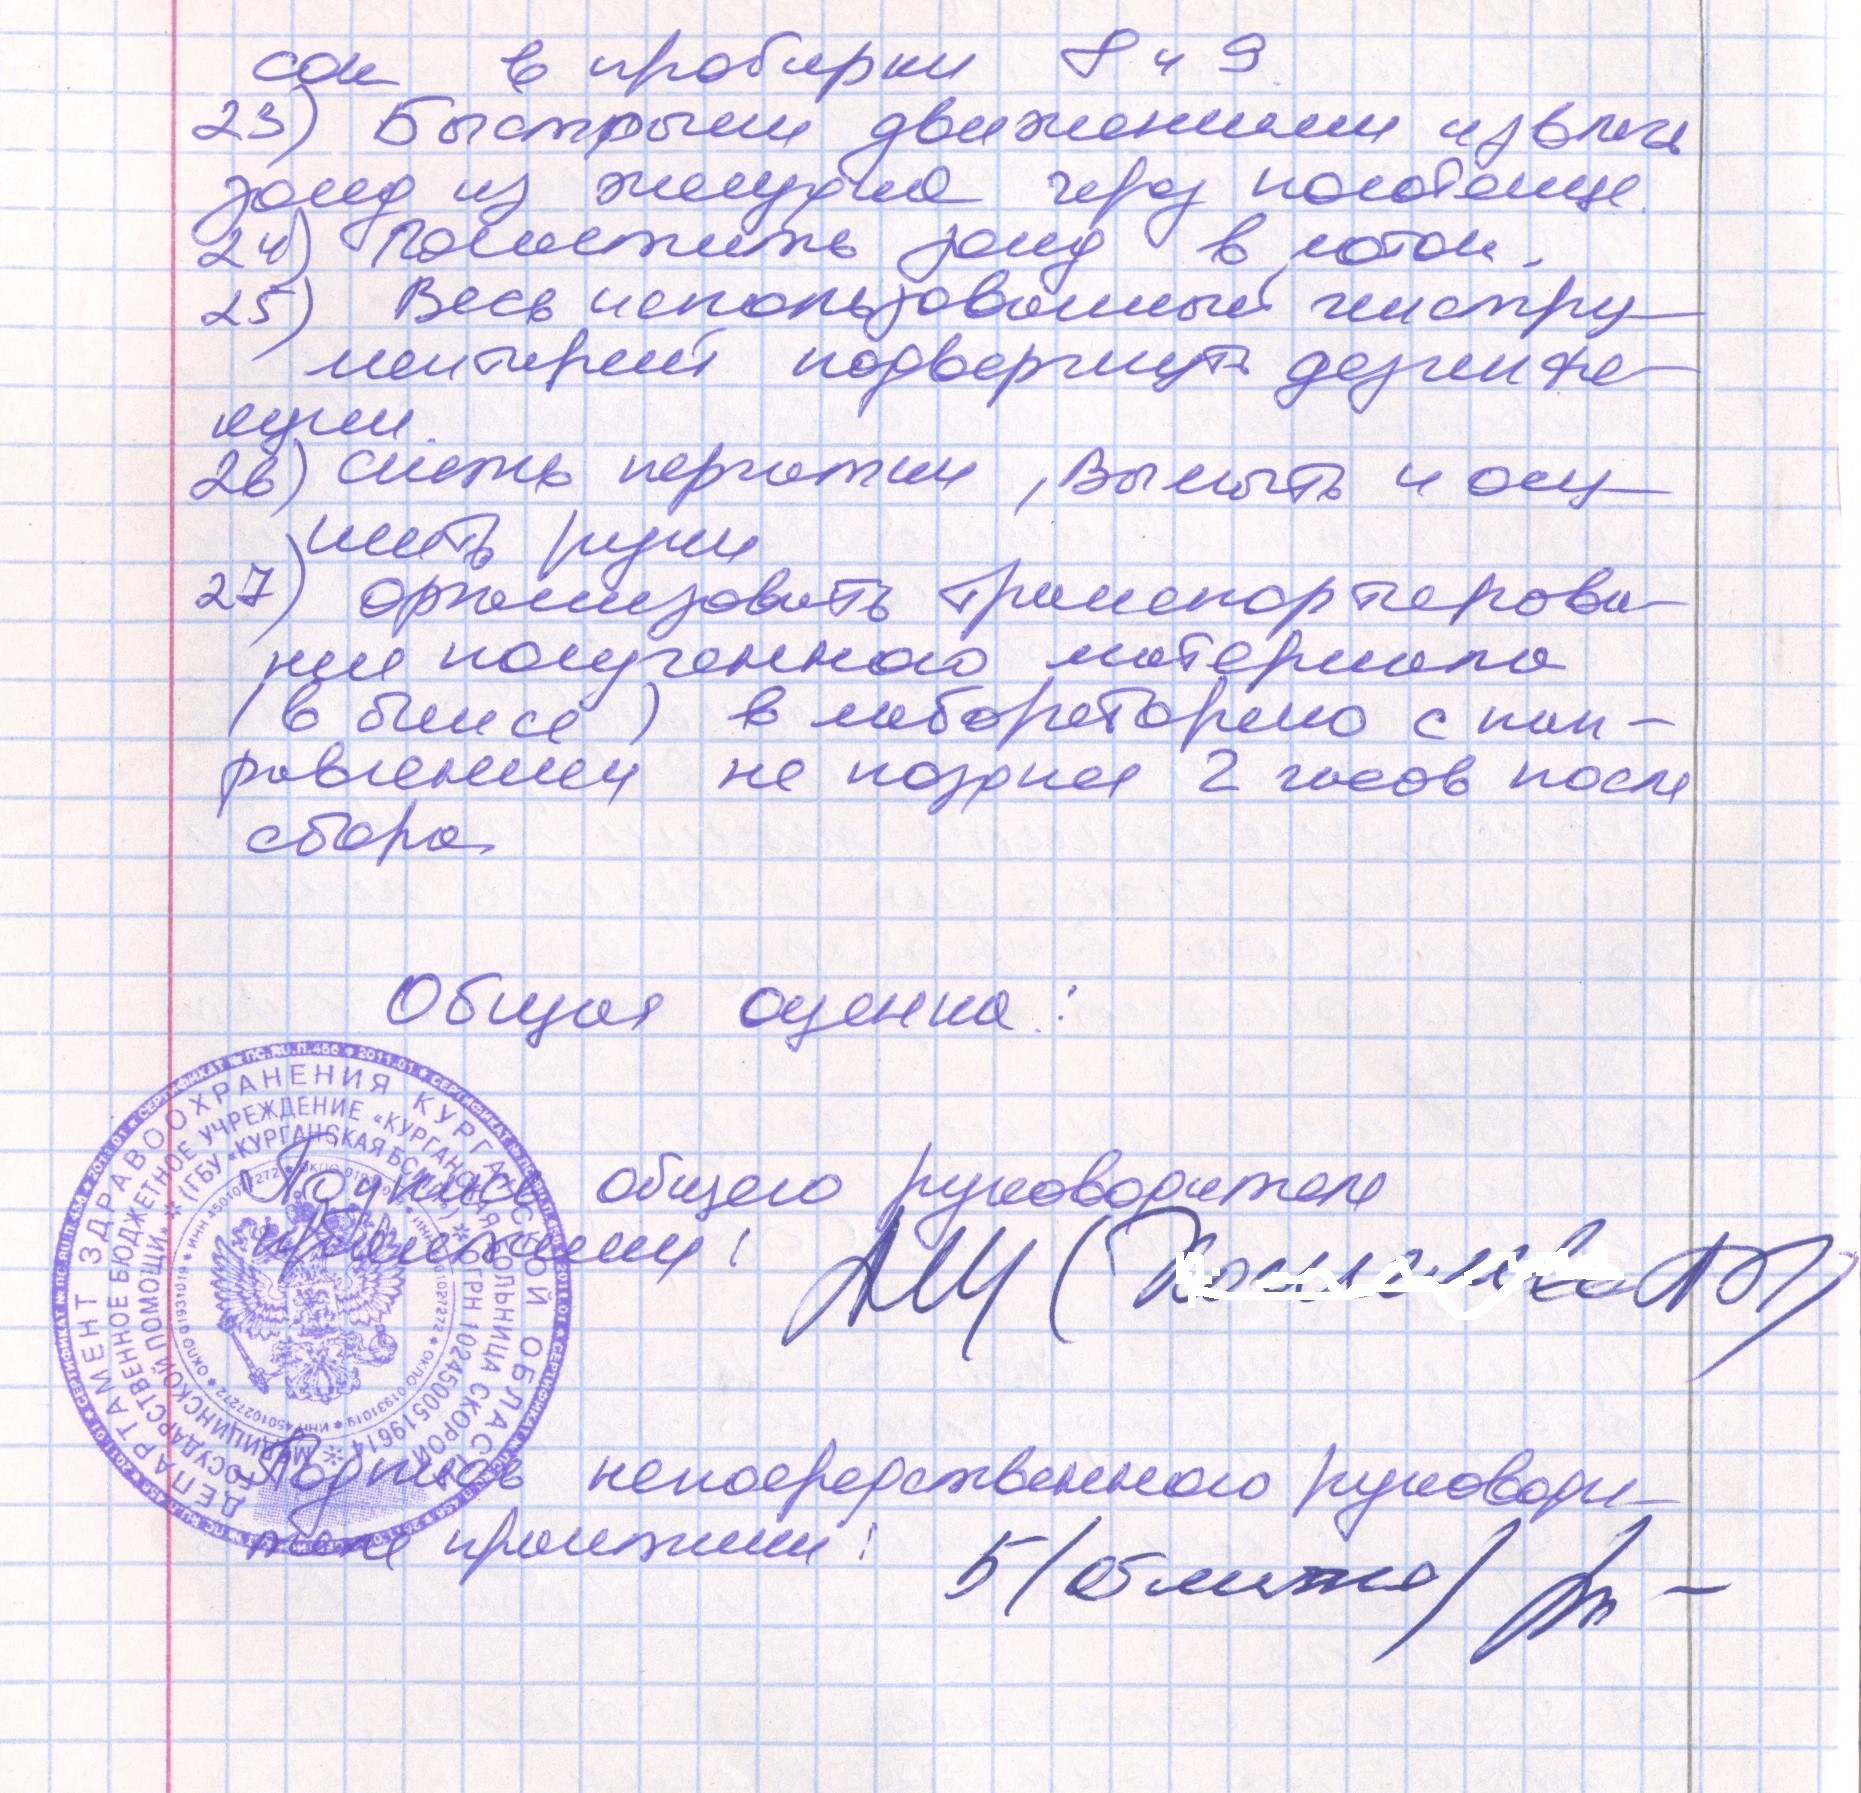 сок в пробирки 8 и 9.
23) Быстрыми движениями извлечь
зонд из желудка через полотенце.
24) Положить зонд в лоток.
25) Весь использованный инстру-
ментарий подвергнуть дезинфе-
кции.
26) снять перчатки, Вымыть и осу-
шить руки
27) организовать транспортирова-
ние полученного материала
(в биксе) в лабораторию с нап-
равлением не позднее 2 часов после
сбора
Общая оценка:
Подпись общего руководителя
практики:
Подпись непосредственного руководи-
теля практики:
5 (
ДЕПАРТАМЕНТ ЗДРАВООХРАНЕНИЯ КУРГАНСКОЙ ОБЛАСТИ
ГОСУДАРСТВЕННОЕ БЮДЖЕТНОЕ УЧРЕЖДЕНИЕ «КУРГАНСКАЯ БОЛЬНИЦА СКОРОЙ
МЕДИЦИНСКОЙ ПОМОЩИ» * (ГБУ «КУРГАНСКАЯ БСМП») * ОГРН 1024500519614 *
* ИНН 4501027272 * ОКПО 01931019
* СЕРТИФИКАТ № ПС.RU.П.456 * 2011.01